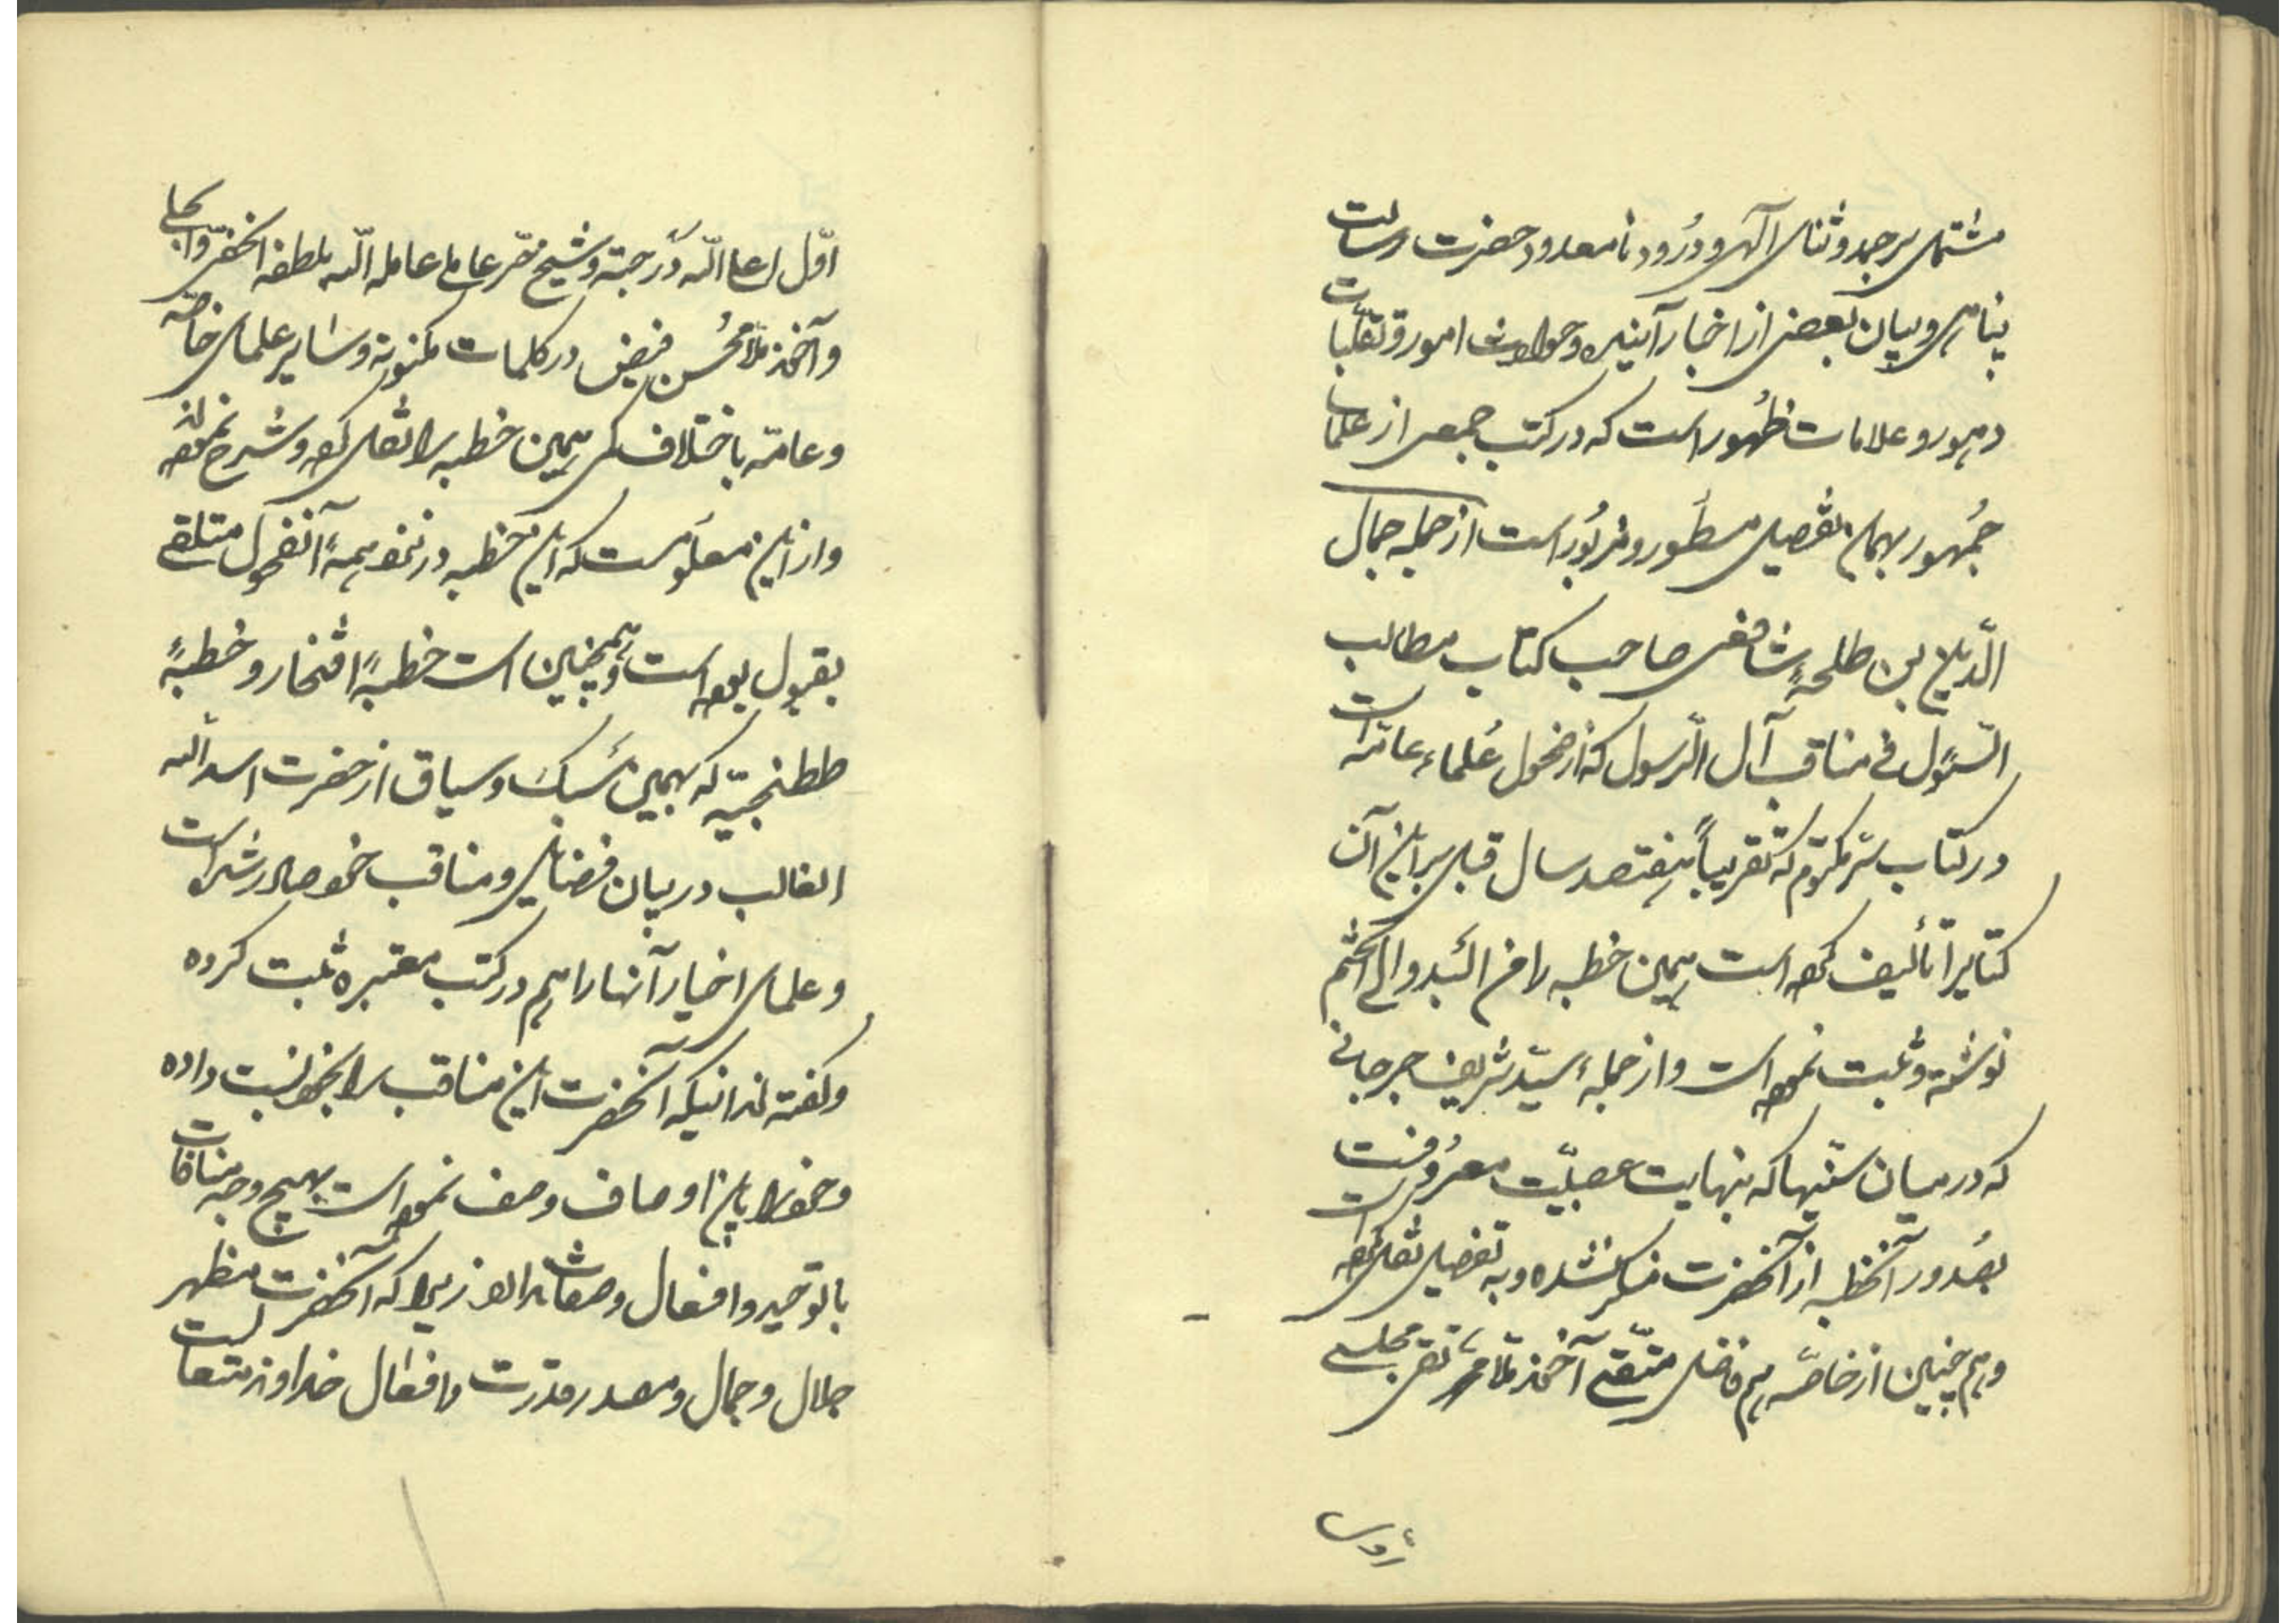 مشتمل بر حمد و ثنای آلهی و درود نامعدود حضرت رسالت
پناهی و بیان بعضی از اخبار آینده و حوادث امور و تقلبات
دهور و علامات ظهور است که در کتب جمعی از علمای
جمهور بهمان تفصیل مسطور و مزبور است از جمله جمال
الدین بن طلحهٔ شافعی صاحب کتاب مطالب
السئول فی مناقب آل الرسول که از فحول علماء عامه است
در کتاب سر مکتوم که تقریباً هفتصد سال قبل بر این آن
کتابرا تألیف کرده است همین خطبه را من البدو الی الختم
نوشته و ثبت نموده است و از جمله سید شریف جرجانی
که در میان سنیها که بنهایت عصبیت معروفست
بصدور آنخطبه از آنحضرت منکر نشده و به تفصیل نقل کرده است
و هم چنین از خاصه هم فاضل متقی آخوند ملا محمد تقی مجلسی
اول اعلا الله درجته و شیخ حر عاملی عامله الله بلطفه الخفی و الجلی
و آخوند ملا محسن فیض در کلمات مکنونه و سایر علمای خاصه
و عامه باختلاف کمی همین خطبه را نقل کرده و شرح نموده‌اند
و از این معلومست که این خطبه در نزد همهٔ آنفحول متلقی
بقبول بوده است و همچنین است خطبهٔ افتخار و خطبهٔ
ططنجیه که بهمین سبک و سیاق از حضرت اسد الله
الغالب در بیان فضایل و مناقب خود صادر شده است
و علمای اخیار آنها را هم در کتب معتبره ثبت کرده
و گفته‌اند اینکه آنحضرت این مناقب را بخود نسبت داده
و خود را باین اوصاف وصف نموده است بهیچ وجه منافات
با توحید و افعال و صفات ندارد زیرا که آنحضرت مظهر
جلال و جمال و مصدر قدرت و افعال خداوند متعا لست